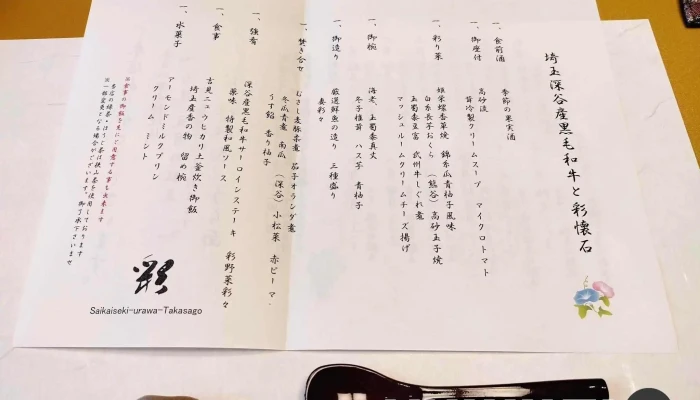 埼玉深谷産黒毛和牛と彩懐石
一、食前酒 季節の果実酒
一、御座付 高砂流
昔冷製クリームスープ マイクロトマト
一、彩り菜 姫栄螺香草焼 錦糸瓜青柚子風味
白糸長芋おくら (熊谷)高砂玉子焼
玉蜀黍豆富 武州牛しぐれ煮
マッシュルームクリームチーズ揚げ
一、御椀 海老、玉蜀黍真丈
冬子椎茸 ハス芋 青柚子
一、御造り 厳選鮮魚の造り 三種盛り
妻彩々
一、焚き合せ むさし麦豚茶煮 茄子オランダ煮
冬瓜青煮 南瓜 (深谷)小松菜 赤ピーマ
うす餡 香り柚子
一、強肴 深谷産黒毛和牛サーロインステーキ 彩野菜彩々
薬味 特製和風ソース
一、食事 吉見ニュウヒカリ土釜炊き御飯
埼玉産香の物 留め椀
一、水菓子 アーモンドミルクプリン
クリーム ミント
※食事の御飯を先にご用意する事も出来ます
当店の緑茶・ほうじ茶は狭山茶を使用しております
※一部変更となる場合がございます。御了承下さいませ
彩
Saikaiseki-urawa-Takasago